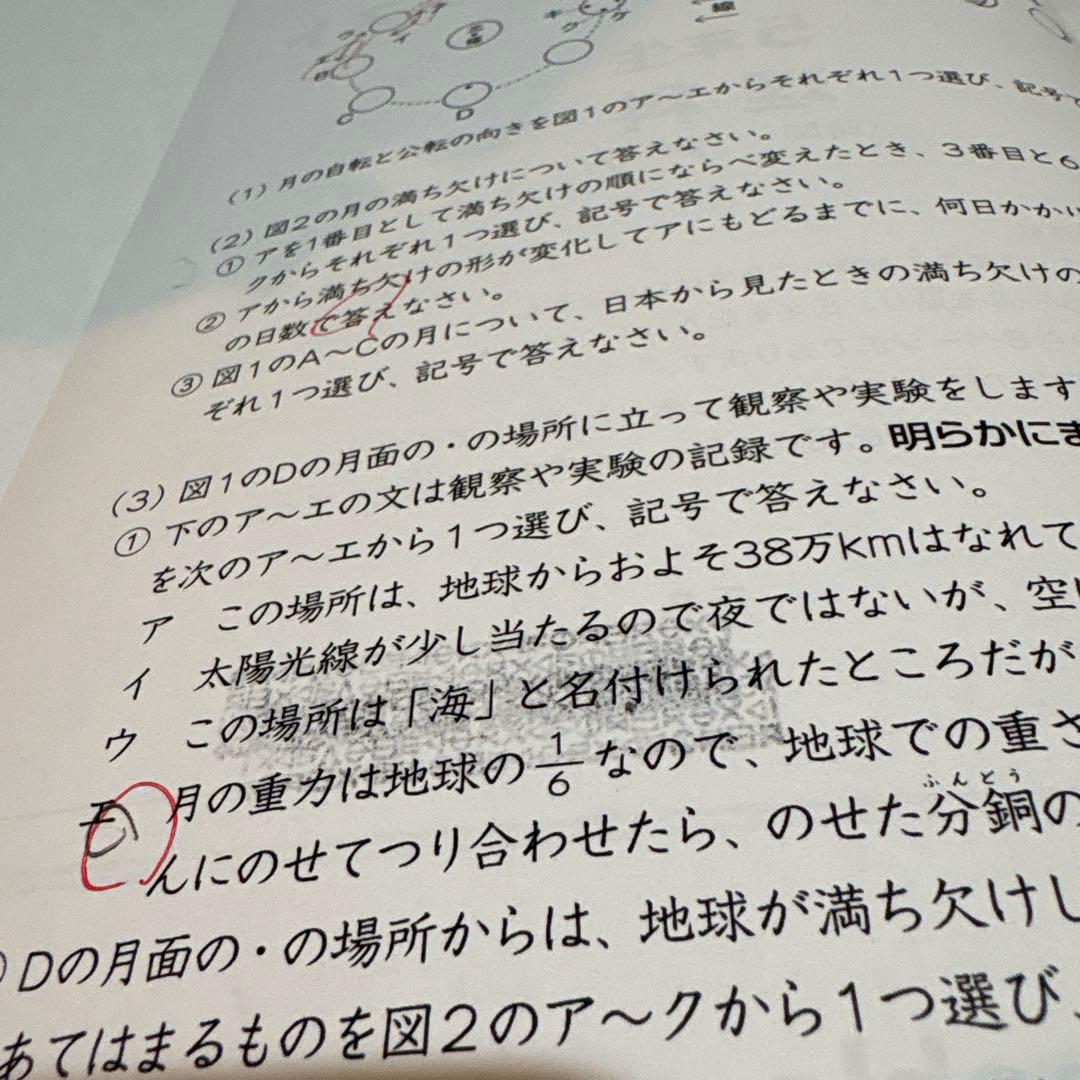 (1) 月の自転と公転の向きを図1のア～エからそれぞれ1つ選び、記号で
(2) 図2の月の満ち欠けについて答えなさい。
① アを1番目として満ち欠けの順にならべ変えたとき、3番目と6
クからそれぞれ1つ選び、記号で答えなさい。
② アから満ち欠けの形が変化してアにもどるまでに、何日かか
の日数で答えなさい。
③ 図1のA～Cの月について、日本から見たときの満ち欠けの
ぞれ1つ選び、記号で答えなさい。
(3) 図1のDの月面の・の場所に立って観察や実験をします
① 下のア～エの文は観察や実験の記録です。明らかにま
を次のア～エから1つ選び、記号で答えなさい。
ア この場所は、地球からおよそ38万kmはなれて
イ 太陽光線が少し当たるので夜ではないが、空は
ウ この場所は「海」と名付けられたところだが
エ 月の重力は地球の1/6なので、地球での重さ
んにのせてつり合わせたら、のせた分銅の
ふんどう
Dの月面の・の場所からは、地球が満ち欠けし
あてはまるものを図2のア～クから1つ選び、